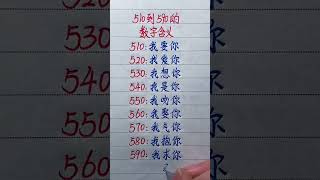 510到590的
数字含义
510:我要你
520:我爱你
530:我想你
540:我是你
550:我吻你
560:我娶你
570:我气你
580:我抱你
590:我求你